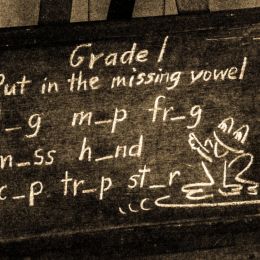 Grade 1
Put in the missing vowel
_g m_p fr_g
m_ss h_nd
c_p tr_p st_r